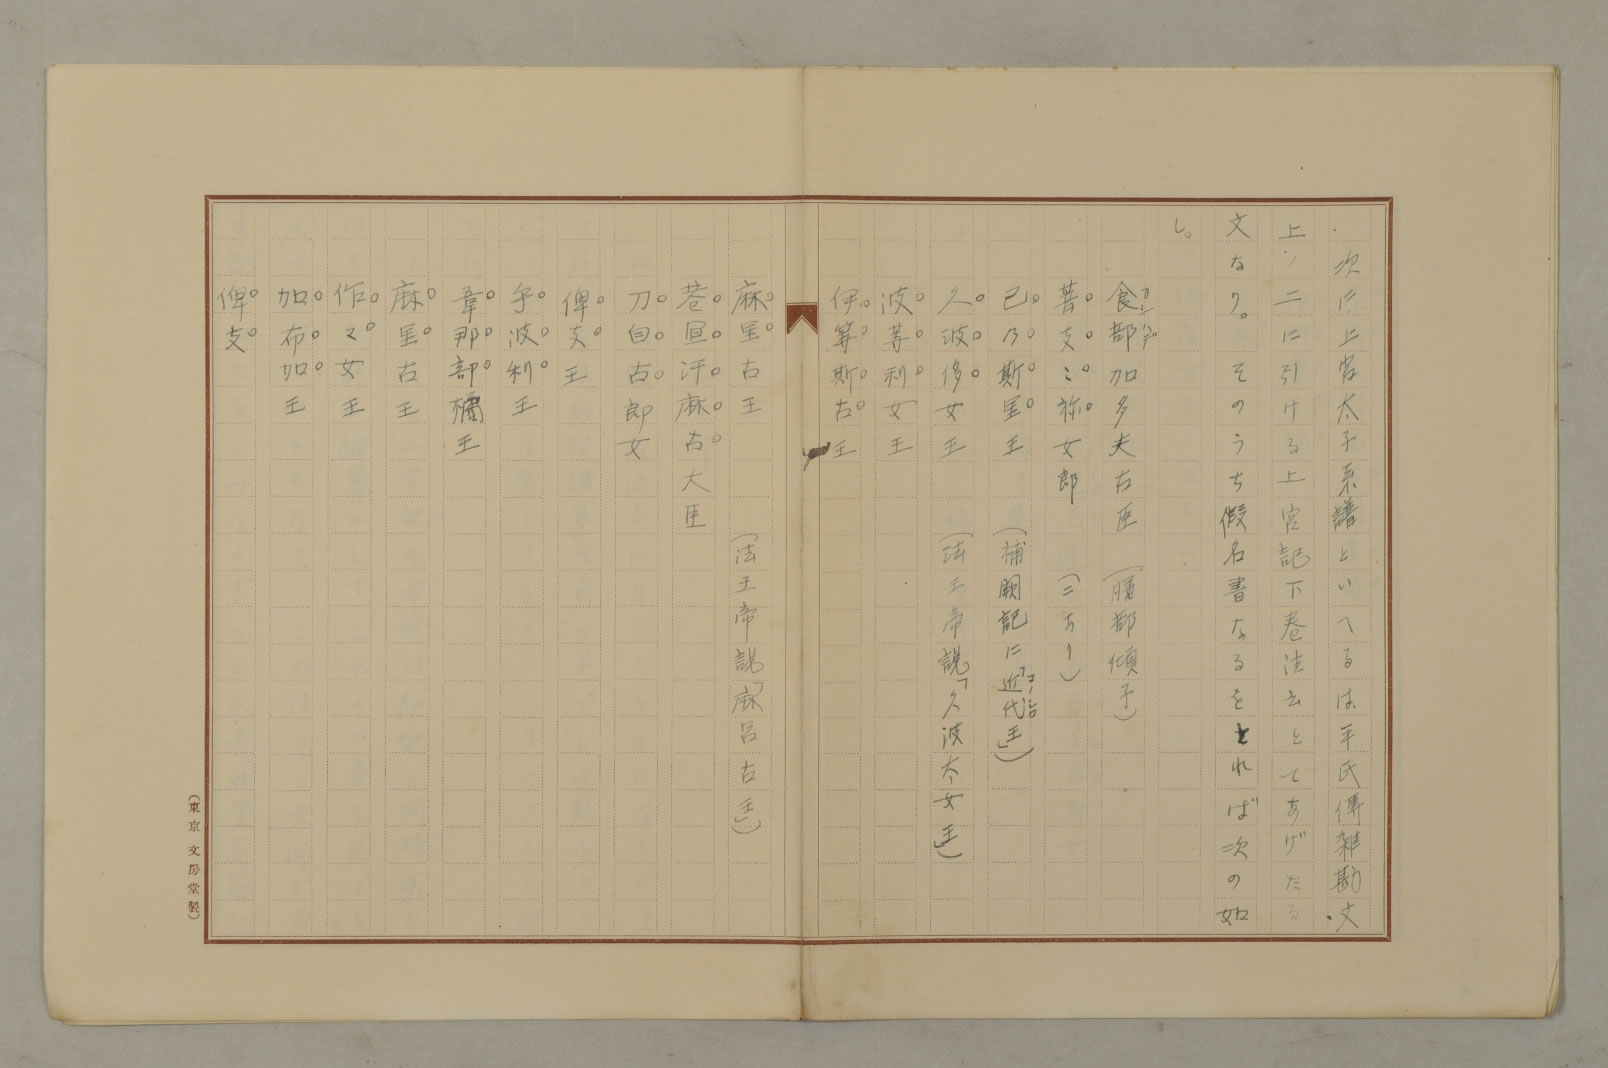 次に上宮太子系譜といへるは平氏傳雑勘文
上ノ二に引ける上宮記下巻注云とてあげたる
文なり。そのうち假名書なるをとれば次の如
し。
食部加多夫古臣 (膳部傾子)
カシハデ
菩支々祢女郎 (三あり)
己乃斯里王 (補闕記に「近代王」)
久波侈女王 (法王帝説「久波太女王」)
波等利女王
伊等斯古王
麻里古王 (法王帝説「麻呂古王」)
巷宜汙麻古大臣
刀自古郎女
俾支王
乎波利王
韋那部橘王
麻里古王
作々女王
加布加王
俾支
(東京 文房堂製)